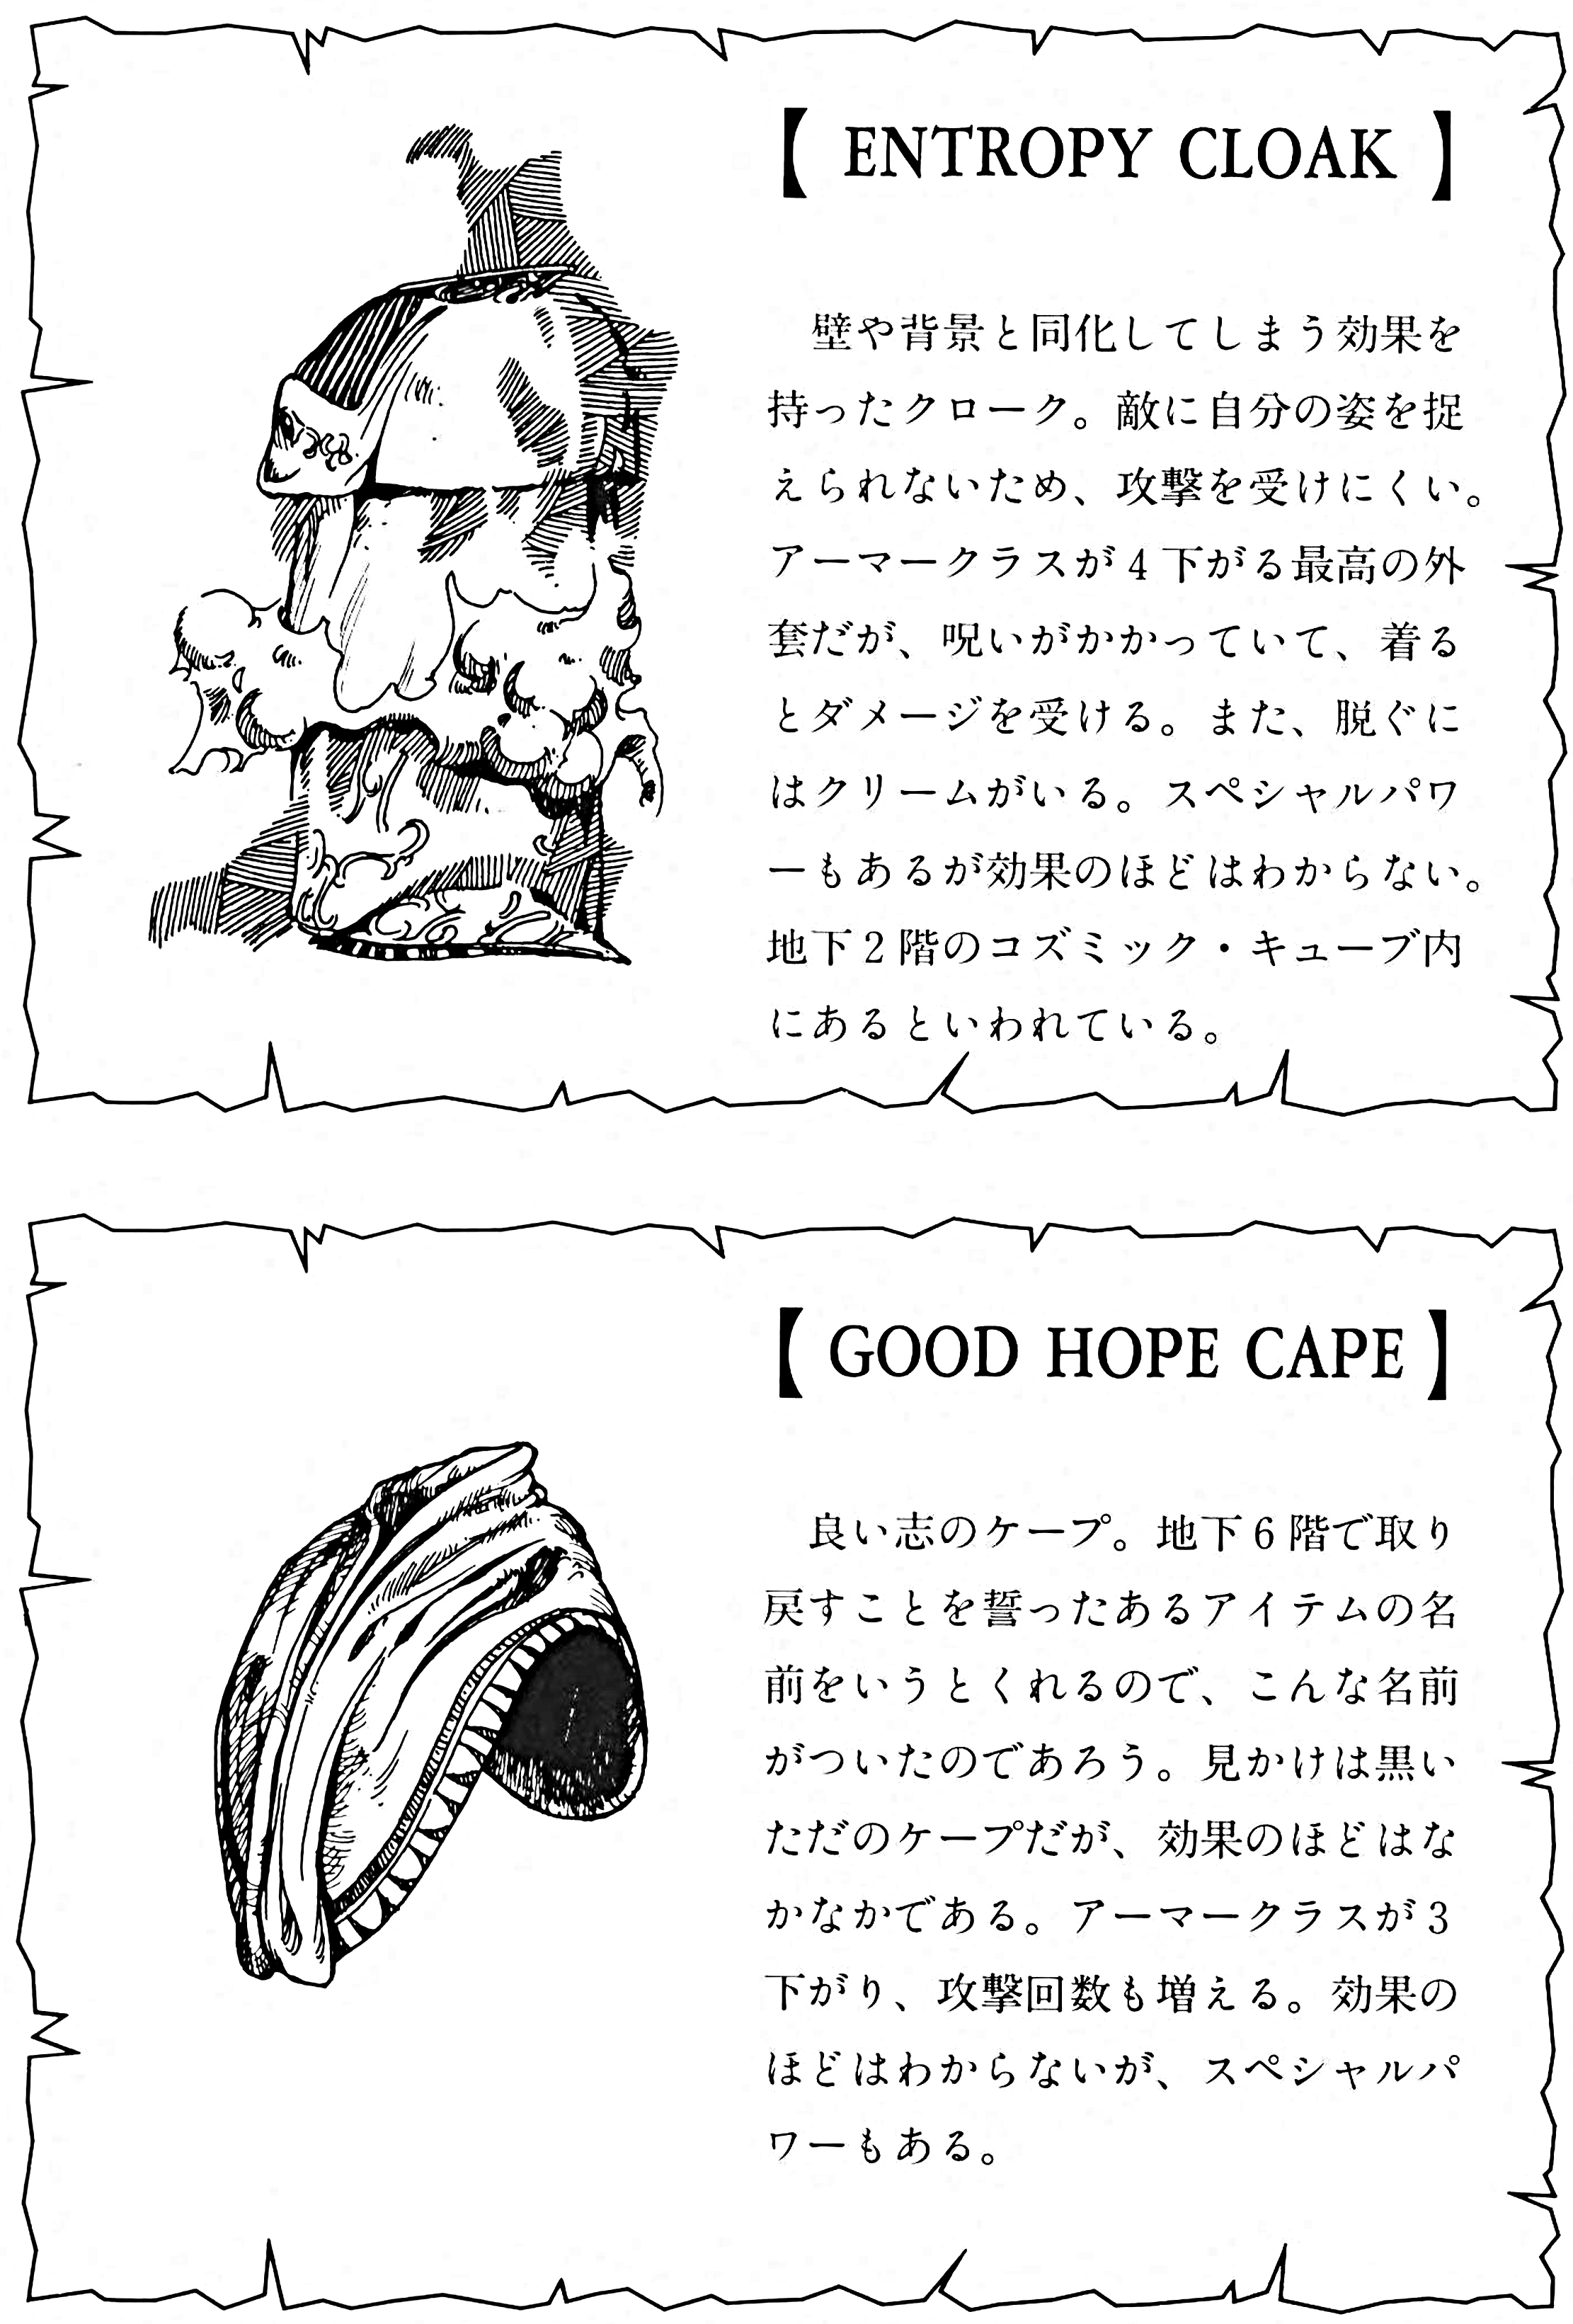 【 ENTROPY CLOAK 】
壁や背景と同化してしまう効果を
持ったクローク。敵に自分の姿を捉
えられないため、攻撃を受けにくい。
アーマークラスが4下がる最高の外
套だが、呪いがかかっていて、着る
とダメージを受ける。また、脱ぐに
はクリームがいる。スペシャルパワ
ーもあるが効果のほどはわからない。
地下2階のコズミック・キューブ内
にあるといわれている。
【 GOOD HOPE CAPE 】
良い志のケープ。地下6階で取り
戻すことを誓ったあるアイテムの名
前をいうとくれるので、こんな名前
がついたのであろう。見かけは黒い
ただのケープだが、効果のほどはな
かなかである。アーマークラスが3
下がり、攻撃回数も増える。効果の
ほどはわからないが、スペシャルパ
ワーもある。